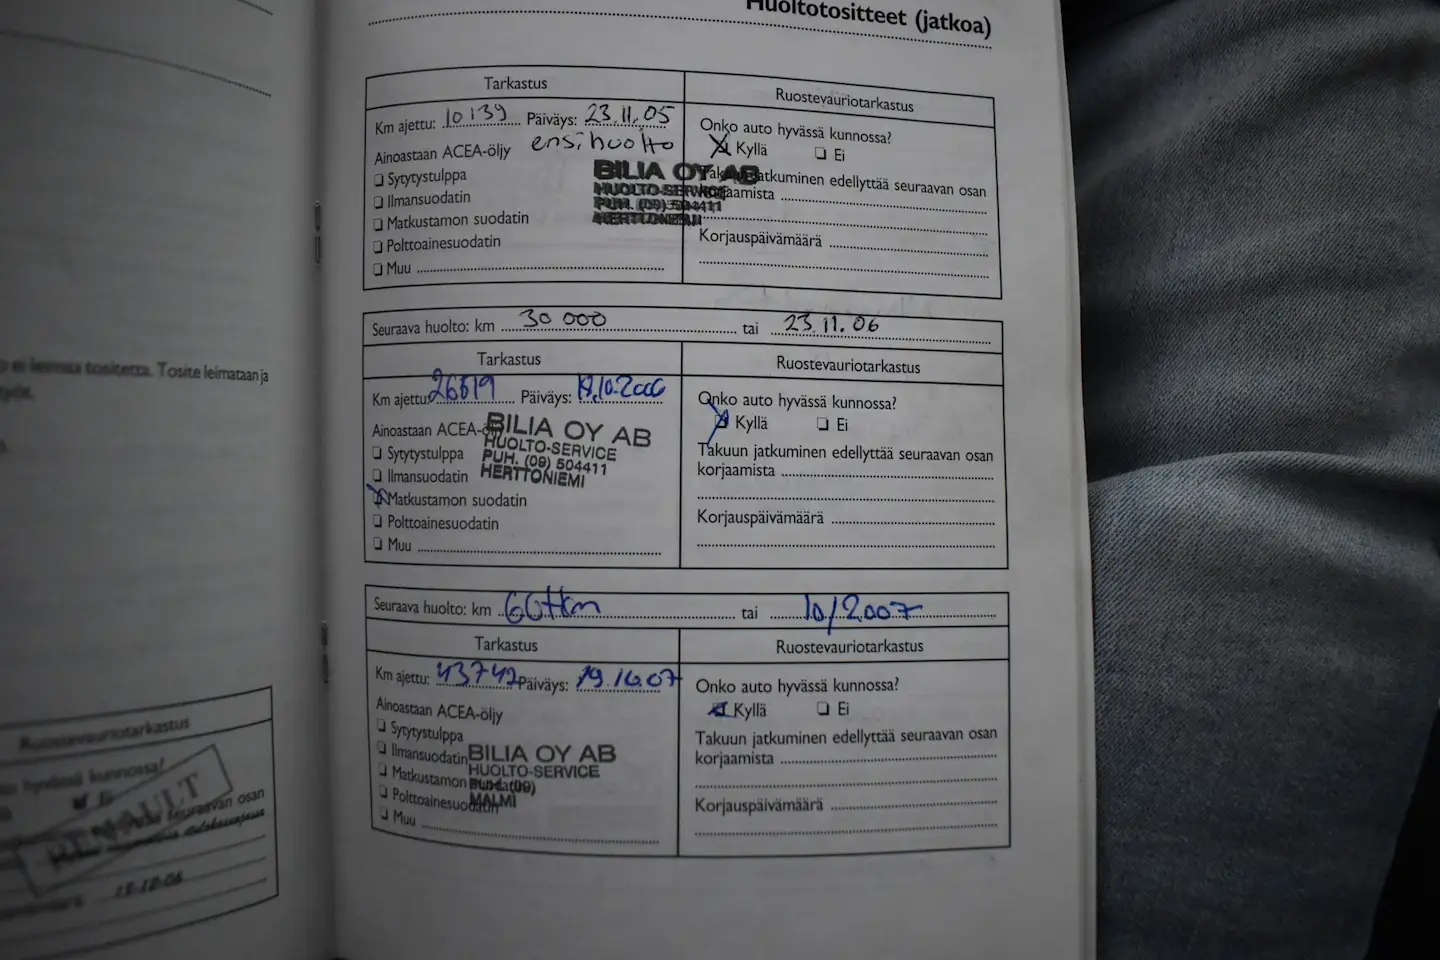 Huoltotositteet (jatkoa)
Tarkastus
Ruostevauriotarkastus
Km ajettu: 10139 Päiväys: 23.11.05
ensihuolto
Ainoastaan ACEA-öljy
Sytytystulppa
Ilmansuodatin
Matkustamon suodatin
Polttoainesuodatin
Muu
BILIA OY AB
HUOLTO-SERVICE
PUH. (09) 504411
HERTTONIEMI
Onko auto hyvässä kunnossa?
Kyllä Ei
Takuun jatkuminen edellyttää seuraavan osan
korjaamista
Korjauspäivämäärä
Seuraava huolto: km 30 000 tai 23.11.06
Tarkastus
Ruostevauriotarkastus
Km ajettu: 26619 Päiväys: 19.10.2006
Ainoastaan ACEA-öljy
Sytytystulppa
Ilmansuodatin
Matkustamon suodatin
Polttoainesuodatin
Muu
BILIA OY AB
HUOLTO-SERVICE
PUH. (09) 504411
HERTTONIEMI
Onko auto hyvässä kunnossa?
Kyllä Ei
Takuun jatkuminen edellyttää seuraavan osan
korjaamista
Korjauspäivämäärä
Seuraava huolto: km 60tkm tai 10/2007
Tarkastus
Ruostevauriotarkastus
Km ajettu: 43742 Päiväys: 19.10.07
Ainoastaan ACEA-öljy
Sytytystulppa
Ilmansuodatin
Matkustamon
Polttoainesuodatin
Muu
BILIA OY AB
HUOLTO-SERVICE
(09)
MALMI
Onko auto hyvässä kunnossa?
Kyllä Ei
Takuun jatkuminen edellyttää seuraavan osan
korjaamista
Korjauspäivämäärä
ei leimaa tositetta. Tosite leimataan ja
Ruostevauriotarkastus
hyvässä kunnossa?
seuraavan osan
RENAULT
18-12-06